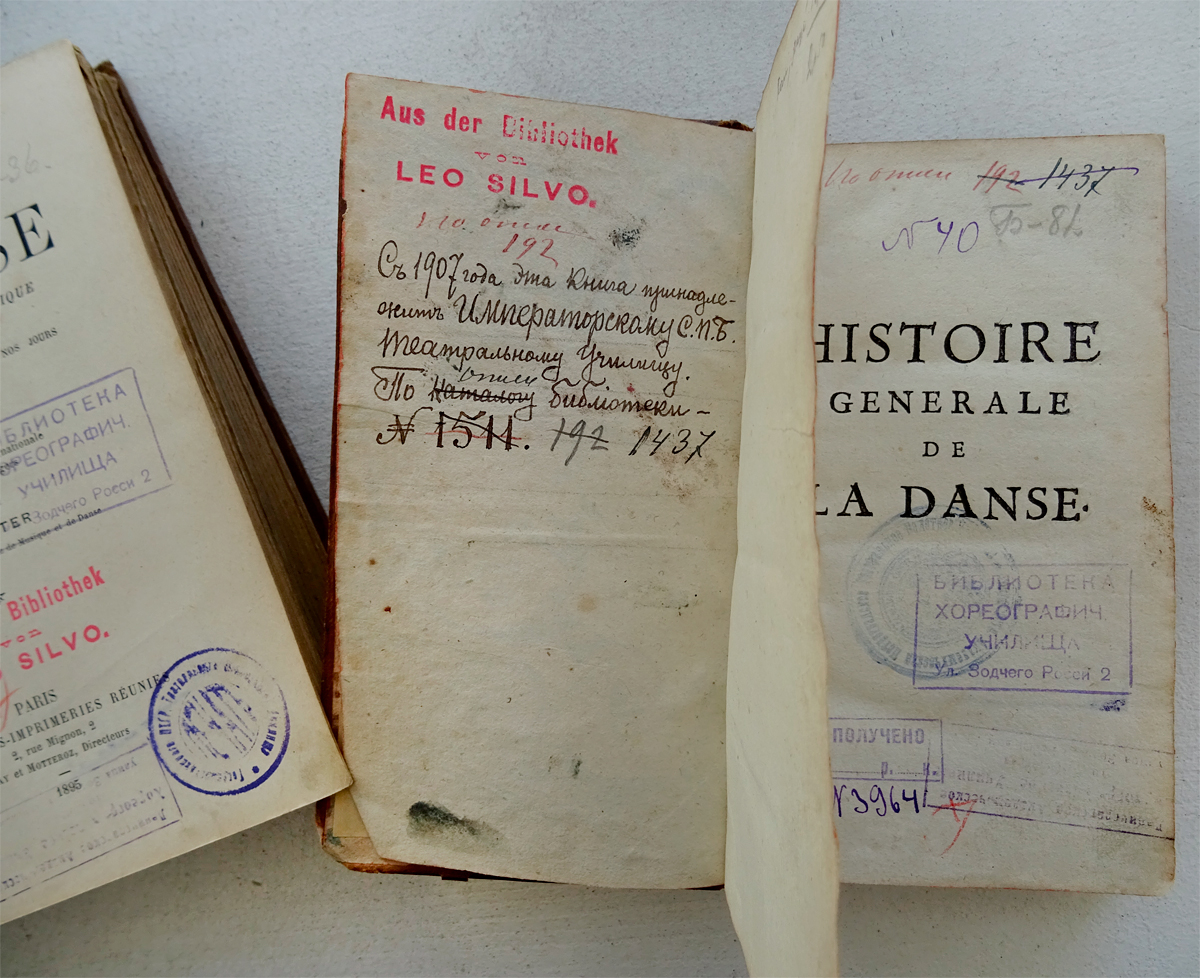 SE
IQUE
NOS JOURS
БЛИОТЕКА
ОРЕОГРАФИЧ.
УЧИЛИЩА
Зодчего Росси 2
nationale
TER
de Musique et de Danse
Bibliothek
von
SILVO.
PARIS
S-IMPRIMERIES RÉUNIES
2, rue Mignon, 2
AY et MOTTEROZ, Directeurs
1895
Aus der Bibliothek
von
LEO SILVO.
по описи
192
Съ 1907 года эта Книга принадле-
житъ Императорскому С.П.Б.
Театральному Училищу.
описи
По каталогу библіотеки –
№ 1511. 192 1437
по описи 192 1437
№ 40 Б-81
HISTOIRE
GENERALE
DE
LA DANSE.
БИБЛИОТЕКА
ХОРЕОГРАФИЧ.
УЧИЛИЩА
Ул. Зодчего Росси 2
ПОЛУЧЕНО
№3964